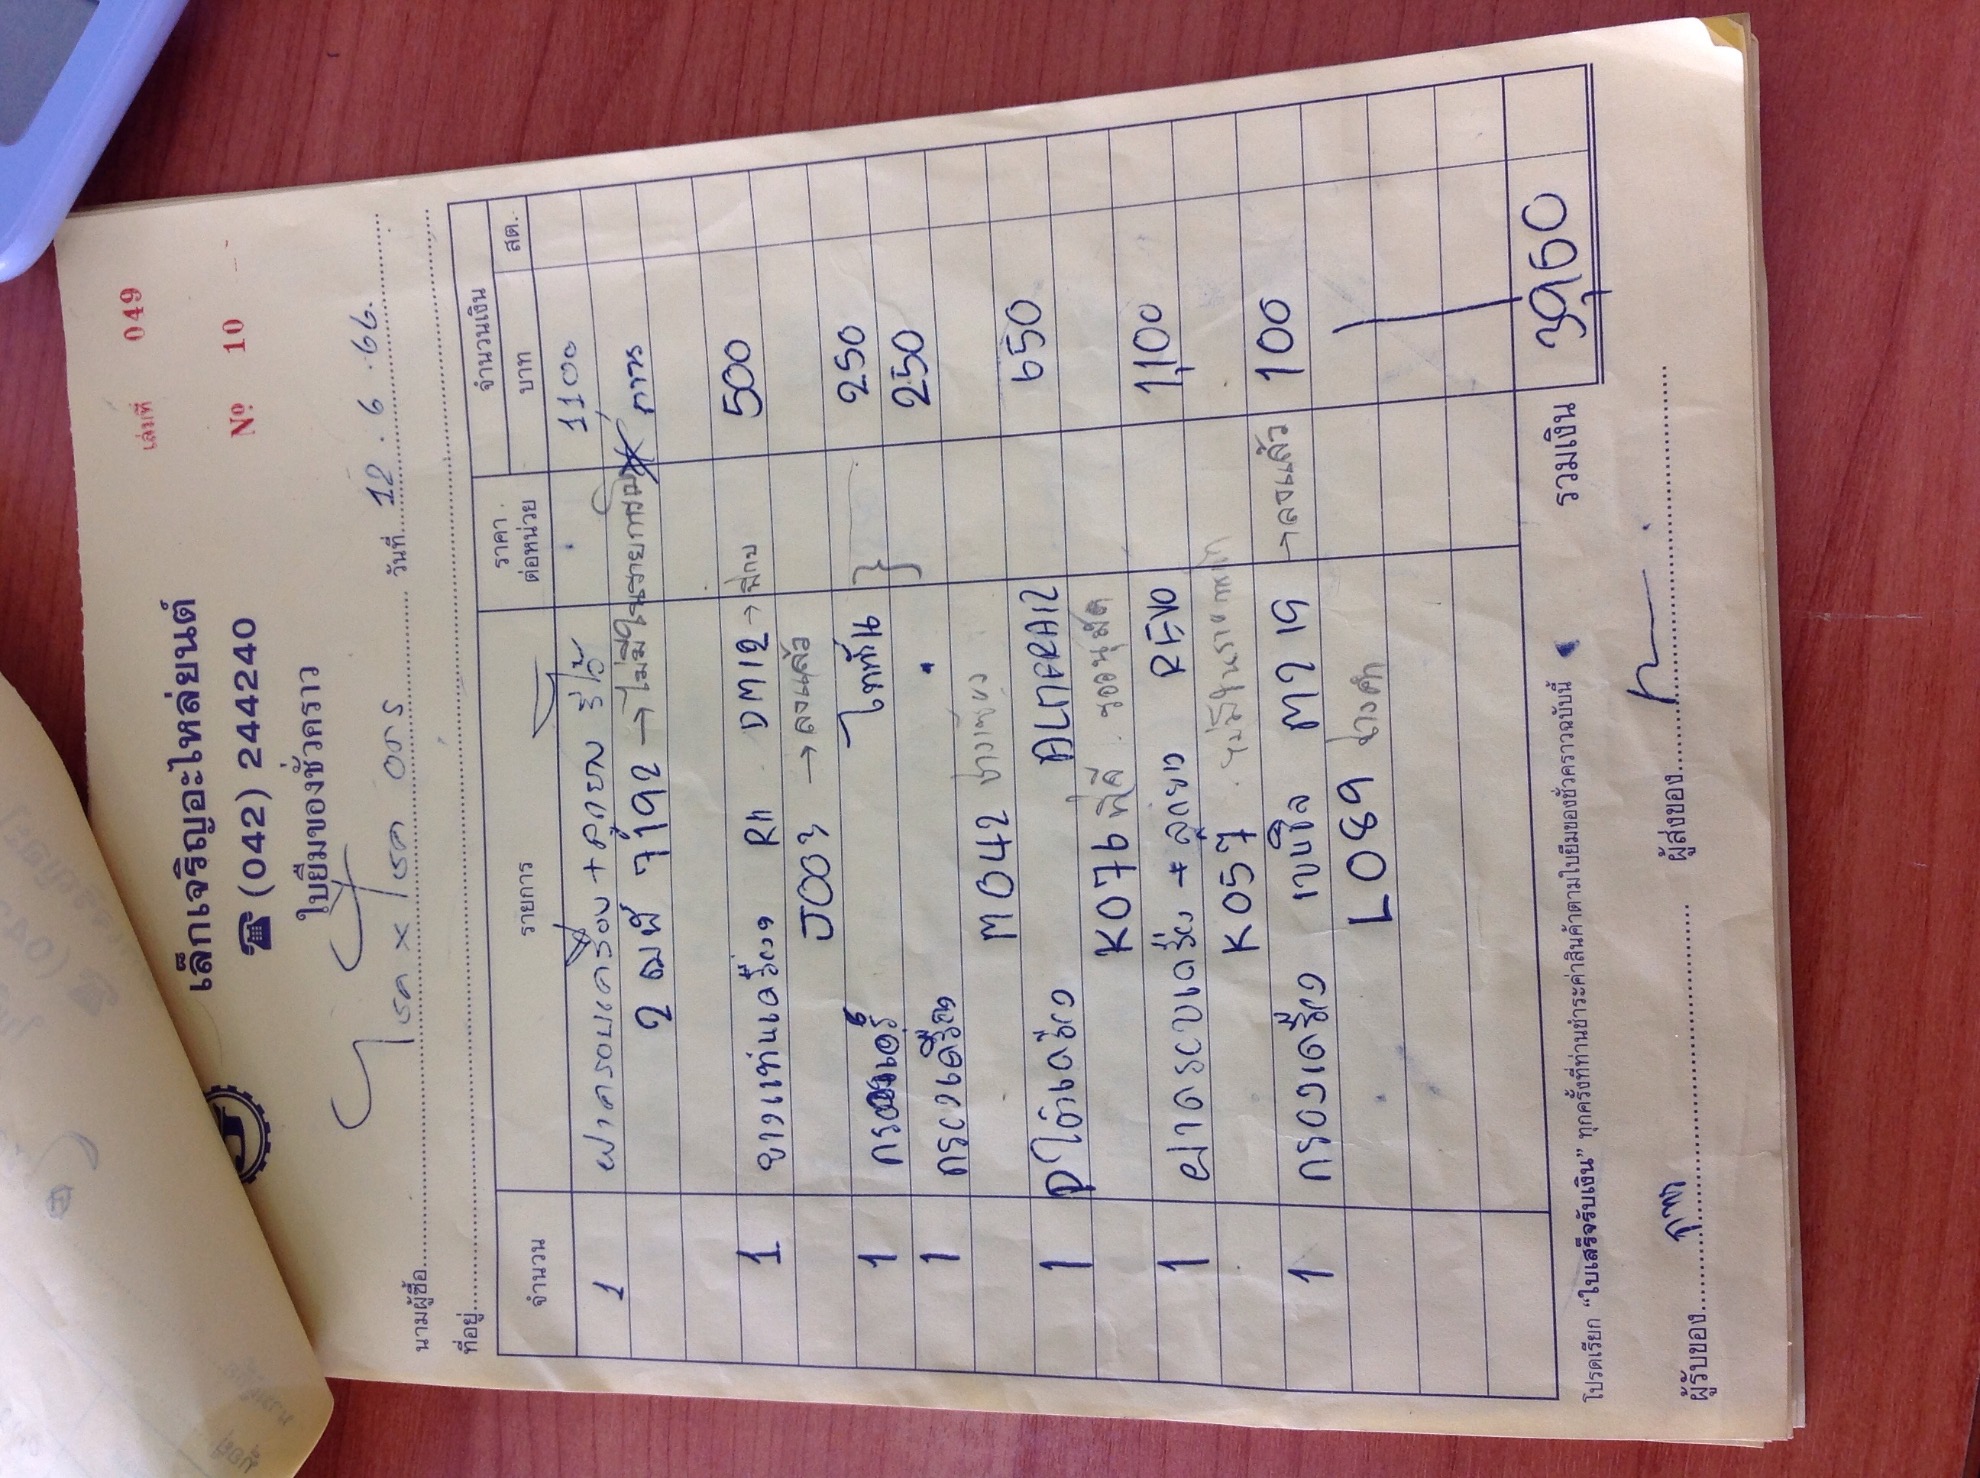 เล่มที่ 049
เล็กเจริญอะไหล่ยนต์
☎ (042) 244240
Nº 10
ใบยืมของชั่วคราว
นามผู้ซื้อ วันที่ 12.6.66.
ที่อยู่
จำนวน รายการ ราคาต่อหน่วย จำนวนเงิน
บาท สต.
1 ฝาครอบเครื่อง + ลูกยาง รีโว้ 1100
2 ฒฬ 7192 → ไม่มีในรายการ
1 ยางแท่นเครื่อง RH DM12 → 500
J003 → ลงแล้ว
1 กรองแอร์ ไททัน } 250
1 กรองเครื่อง 250
M042
1 ALMERA12 650
K076
1 ฝาครอบเครื่อง + ลูกยาง REVO 1,100
K057
1 กรองเครื่อง → ลงแล้ว 100
L089 ช่างดำ
รวมเงิน 3,960
โปรดเรียก "ใบเสร็จรับเงิน" ทุกครั้งที่ท่านชำระค่าสินค้าตามใบยืมของชั่วคราวฉบับนี้
ผู้รับของ ผู้ส่งของ